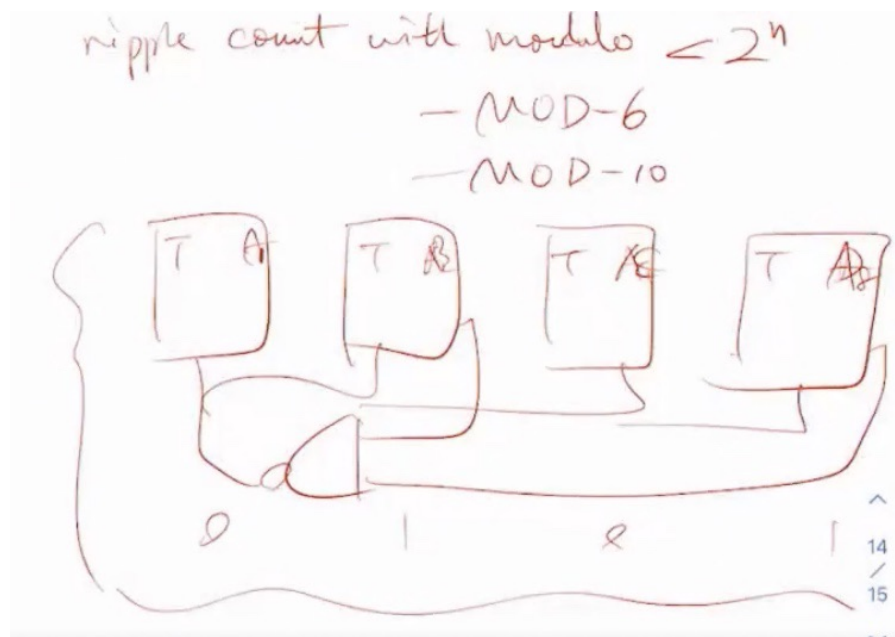 ripple count with modulo < 2ⁿ
- MOD-6
- MOD-10
T A T B T C T D
0 1 0 1
14
/
15